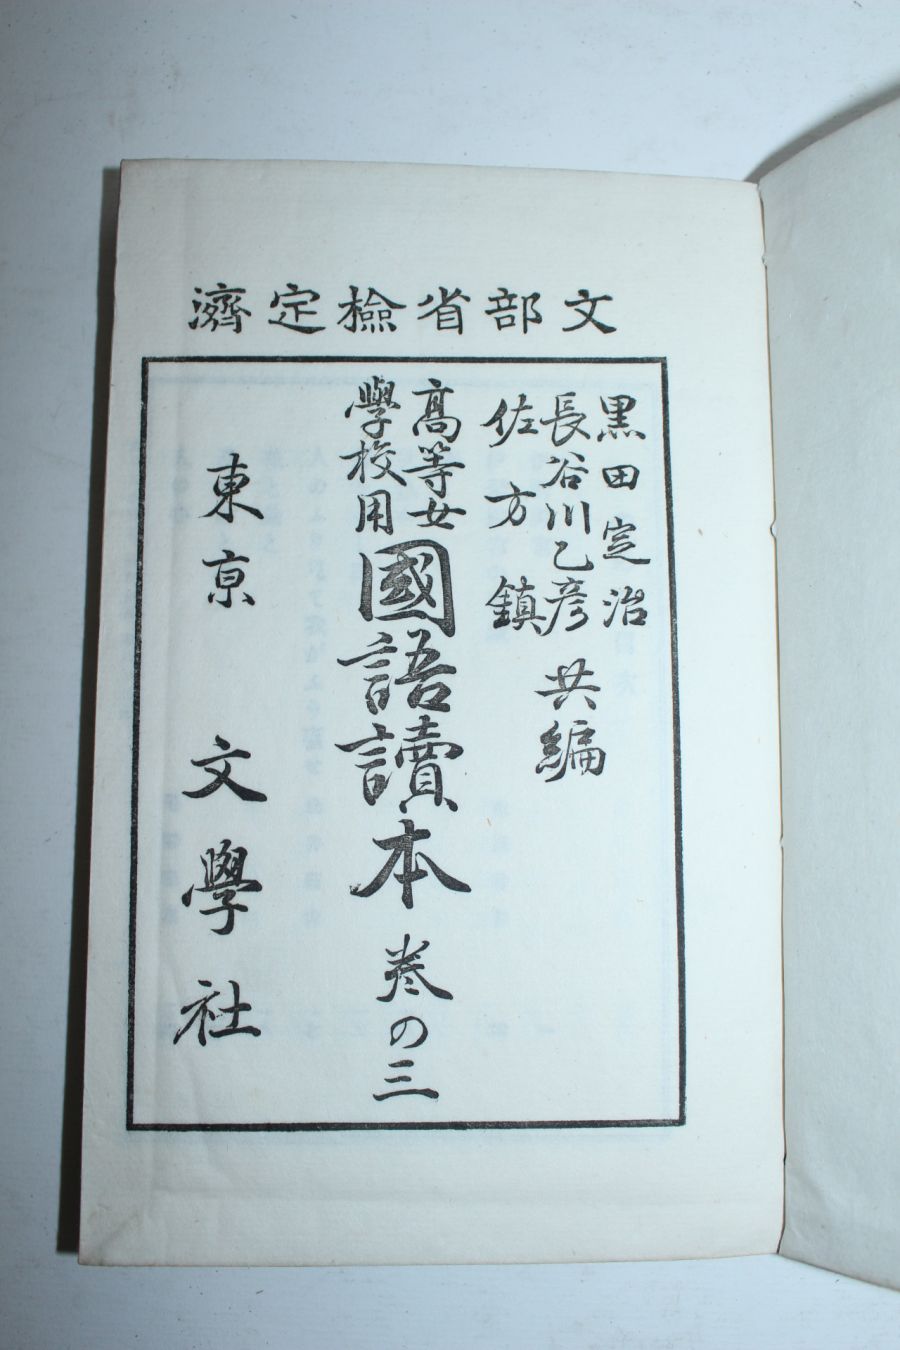 文部省檢定濟
黒田定治
長谷川乙彦
佐方鎮
共編
高等女
學校用
國語讀本 巻の三
東京 文學社